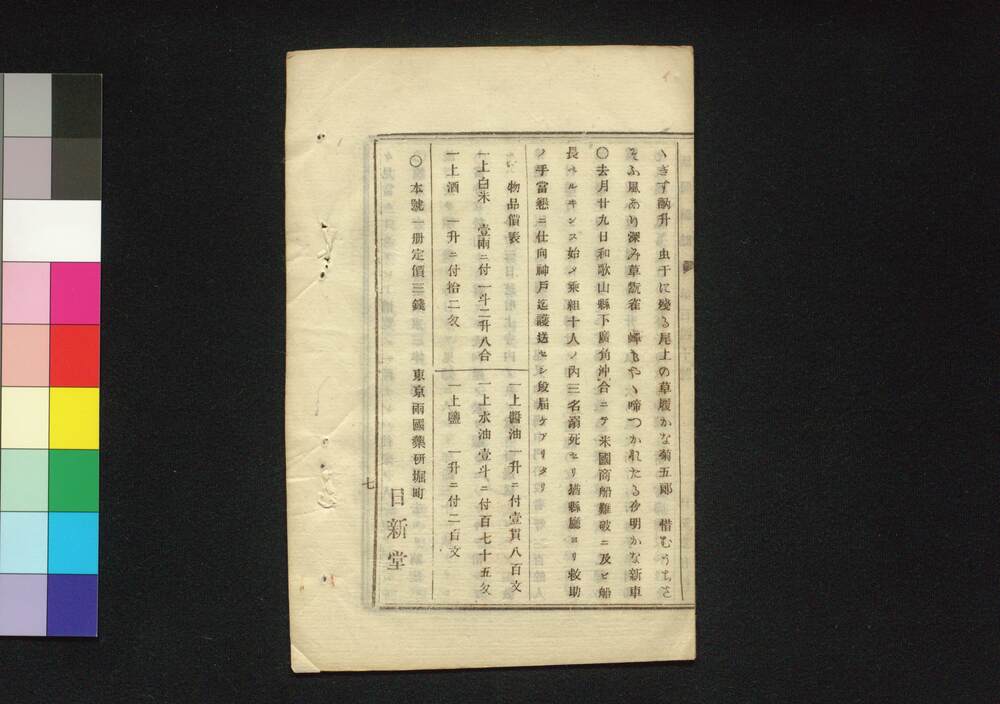 ゝきす訥升　虫干に殘る尾上の草履かな菊五郎　惜むうちを
そふ風あり深み草翫雀　蟬もやゝ啼つかれたる夕明かな新車
〇去月廿九日和歌山縣下廣角沖合ニテ米國商船難破ニ及ヒ船
長ヘルキンス始メ乘組十人ノ内三名溺死セリ猶縣廳ヨリ救助
ノ手當懇ニ仕向神戸迄護送セシ段届ケアリタリ
物品價表
一上醬油　一升ニ付壹貫八百文
一上白米　壹兩ニ付一斗二升八合
一上水油　壹斗ニ付百七十五匁
一上酒　一升ニ付拾二匁
一上鹽　一升ニ付二百文
〇本號一册定價三錢　東京兩國藥研堀町
日新堂
七